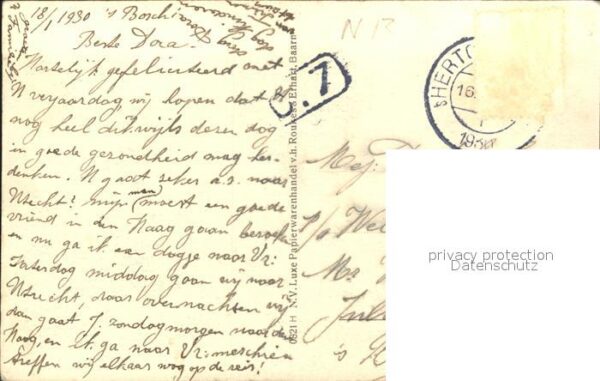 18/1 1930 's Bosch
Beste Dora.
Hartelijk gefeliciteerd met
U verjaardag wij hopen dat U
nog heel dikwijls dezen dag
in goede gezondheid mag her-
denken. U gaat zeker a.s. naar
Utrecht? mijn man moest een goede
vriend in den Haag gaan bezoeken
en nu ga ik een dagje naar Ut:
Zaterdag middag gaan wij naar
Utrecht, daar overnachten wij
dan gaat J. zondagmorgen naar den
Haag, en ik ga naar Ut: misschien
treffen wij elkaar nog op de reis!
dag Dora
N B
J.7
'sHERTO
16.
1930
0821 H N.V. Luxe Papierwarenhandel v.h. Roukes & Erhart, Baarn
Mej:
p/a We
Mr
Jul
's
privacy protection
Datenschutz